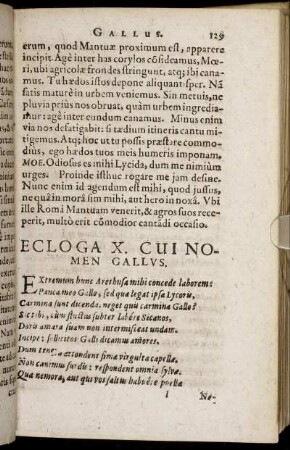 GALLUS. 129
erum, quod Mantuæ proximum est, apparere
incipit. Agè inter has corylos cõsideamus, Mœ-
ri, ubi agricolæ frondes stringunt, atq; ibi cana-
mus. Tu hædos istos depone aliquantisper. Nã
satis maturè in urbem veniemus. Sin metuis, ne
pluvia priùs nos obruat, quàm urbem ingredia-
mur: agè inter eundum canamus. Minus enim
via nos defatigabit: si tædium itineris cantu mi-
tigemus. Atq; hoc ut tu possis præstare commo-
diùs, ego hædos tuos meis humeris imponam.
MOE. Odiosus es mihi Lycida, dum me nimiùm
urges. Proinde istluc rogare me jam desine.
Nunc enim id agendum est mihi, quod jussus,
ne quàm morâ sim mihi, aut hero in noxâ. Vbi
ille Româ Mantuam venerit, & agros suos rece-
perit, multò erit cõmodior cantãdi occasio.
ECLOGA X. CUI NO-
MEN GALLVS.
EXtremum hunc Arethusa mihi concede laborem:
Pauca meo Gallo, sed quæ legat ipsa Lycoris,
Carmina sunt dicenda. neget quis carmina Gallo?
Sic tibi, cùm fluctus subter labêre Sicanos,
Doris amara suam non intermisceat undam.
Incipe: sollicitos Galli dicamus amores,
Dum tenera attondent simæ virgulta capellæ.
Non canimus surdis: respondent omnia sylvæ.
Quæ nemora, aut qui vos saltus habuêre puellæ
I Na-